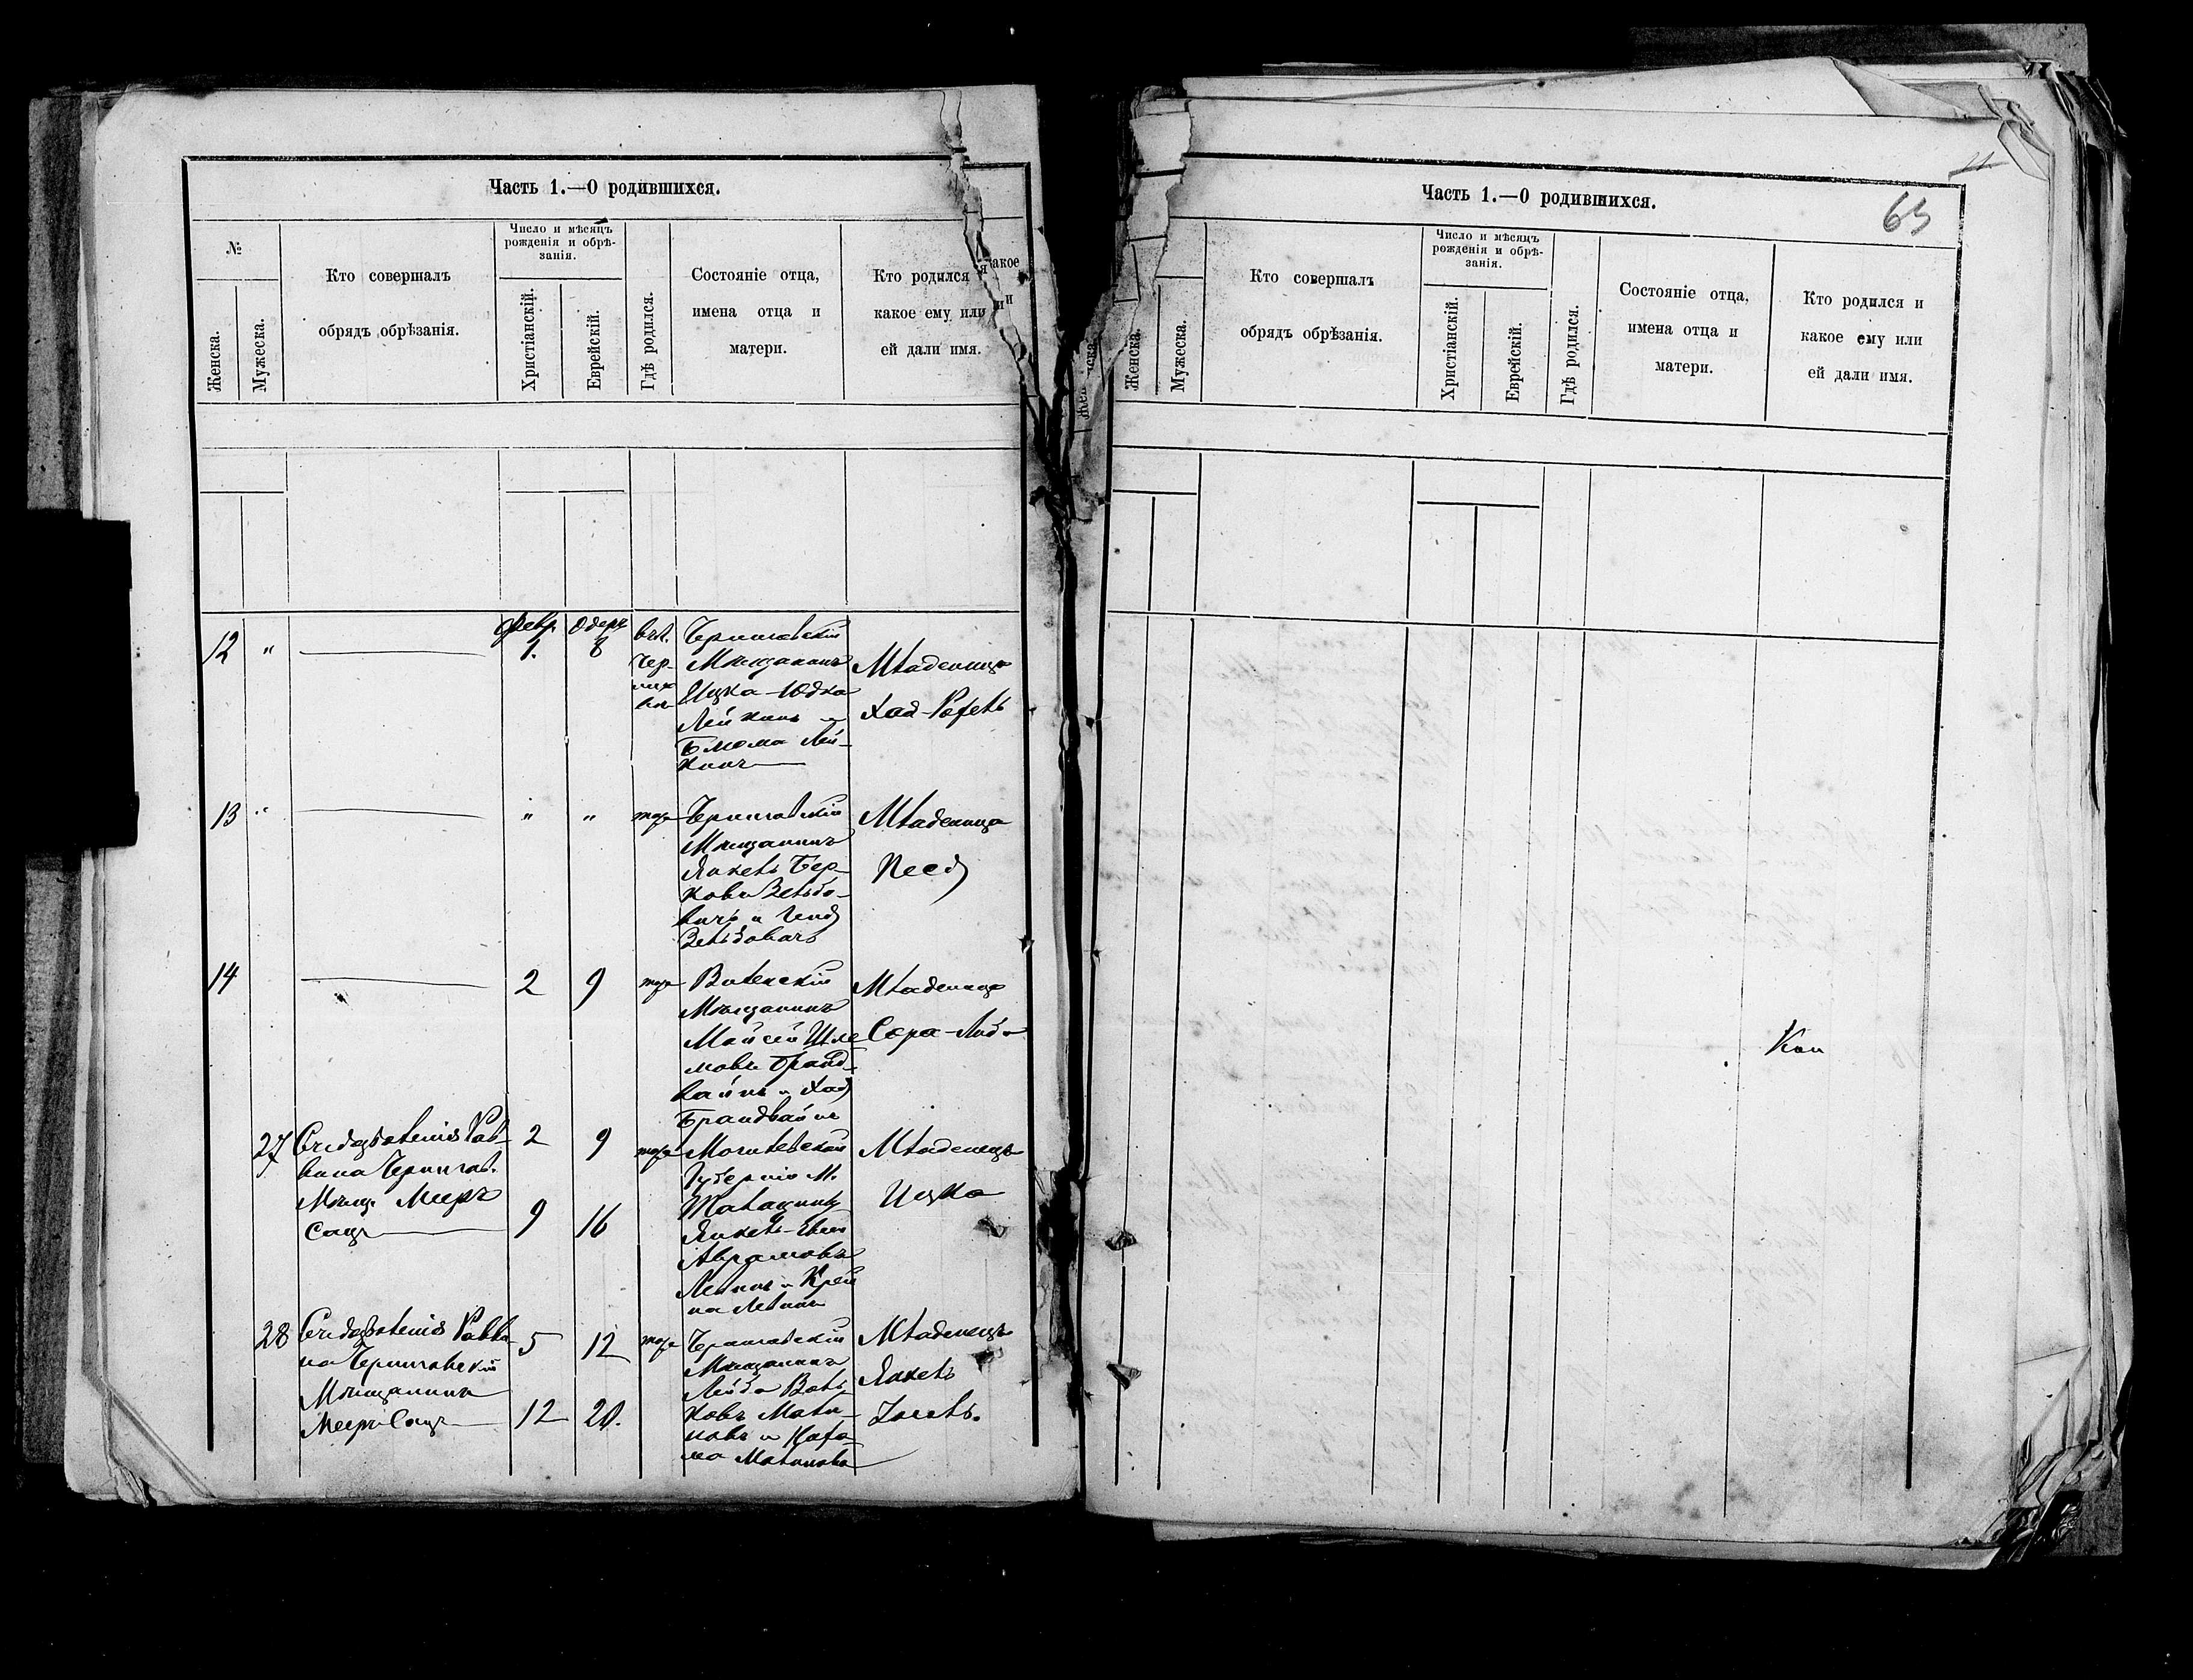 Часть 1.—О родившихся.
№
Женска.
Мужеска.
Кто совершалъ
обрядъ обрѣзанія.
Число и мѣсяцъ
рожденія и обрѣ-
занія.
Христіанскій.
Еврейскій.
Гдѣ родился.
Состояніе отца,
имена отца и
матери.
Кто родился и
какое ему или
ей дали имя.
12 "
Февр.
1.
8
въ г.
Чер-
Черниговскій
Мѣщанинъ
Ицка-Юдка
Лейкинъ и
Блюма Лей-
кинъ
Младеница
Хая-Рохель
13 "
" "
тоже
Черниговскій
Мѣщанинъ
Янкель Бер-
ковъ Зельдо-
вичъ и Генд
Зельдовичъ
Младеница
Песя
14
2 9
тоже
Виленскій
Мѣщанинъ
Шле
мовъ Бранд-
вайнъ и Хая
Брандвайнъ
Младеница
Сора-Либа
27
Раб-
вина Чернигов.
Мѣщ. Мееръ
Сацъ
2 9
9 16
тоже
Могилевской
Губерніи М.
Янкель-
Абрамовъ
Левинъ и Крей
на Левинъ
Младенецъ
Ицка
28
Равви-
на Черниговскій
Мѣщанинъ
Мееръ Сацъ
5 12
12 20.
тоже
Черниговскій
Мѣщанинъ
Лейба Воль
ковъ Мали-
новъ и
ма Малинова
Младенецъ
Янкель
Часть 1.—О родившихся.
65
Женска.
Мужеска.
Кто совершалъ
обрядъ обрѣзанія.
Число и мѣсяцъ
рожденія и обрѣ-
занія.
Христіанскій.
Еврейскій.
Гдѣ родился.
Состояніе отца,
имена отца и
матери.
Кто родился и
какое ему или
ей дали имя.